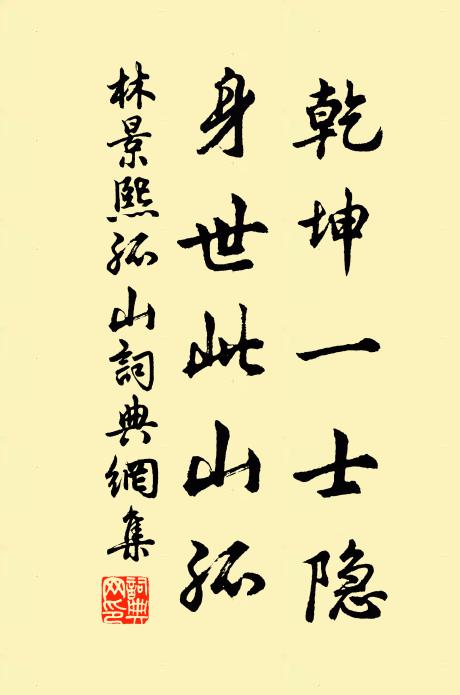 乾坤一士隐
身世此山孤
林景熙孤山詞典網集
詞典网印